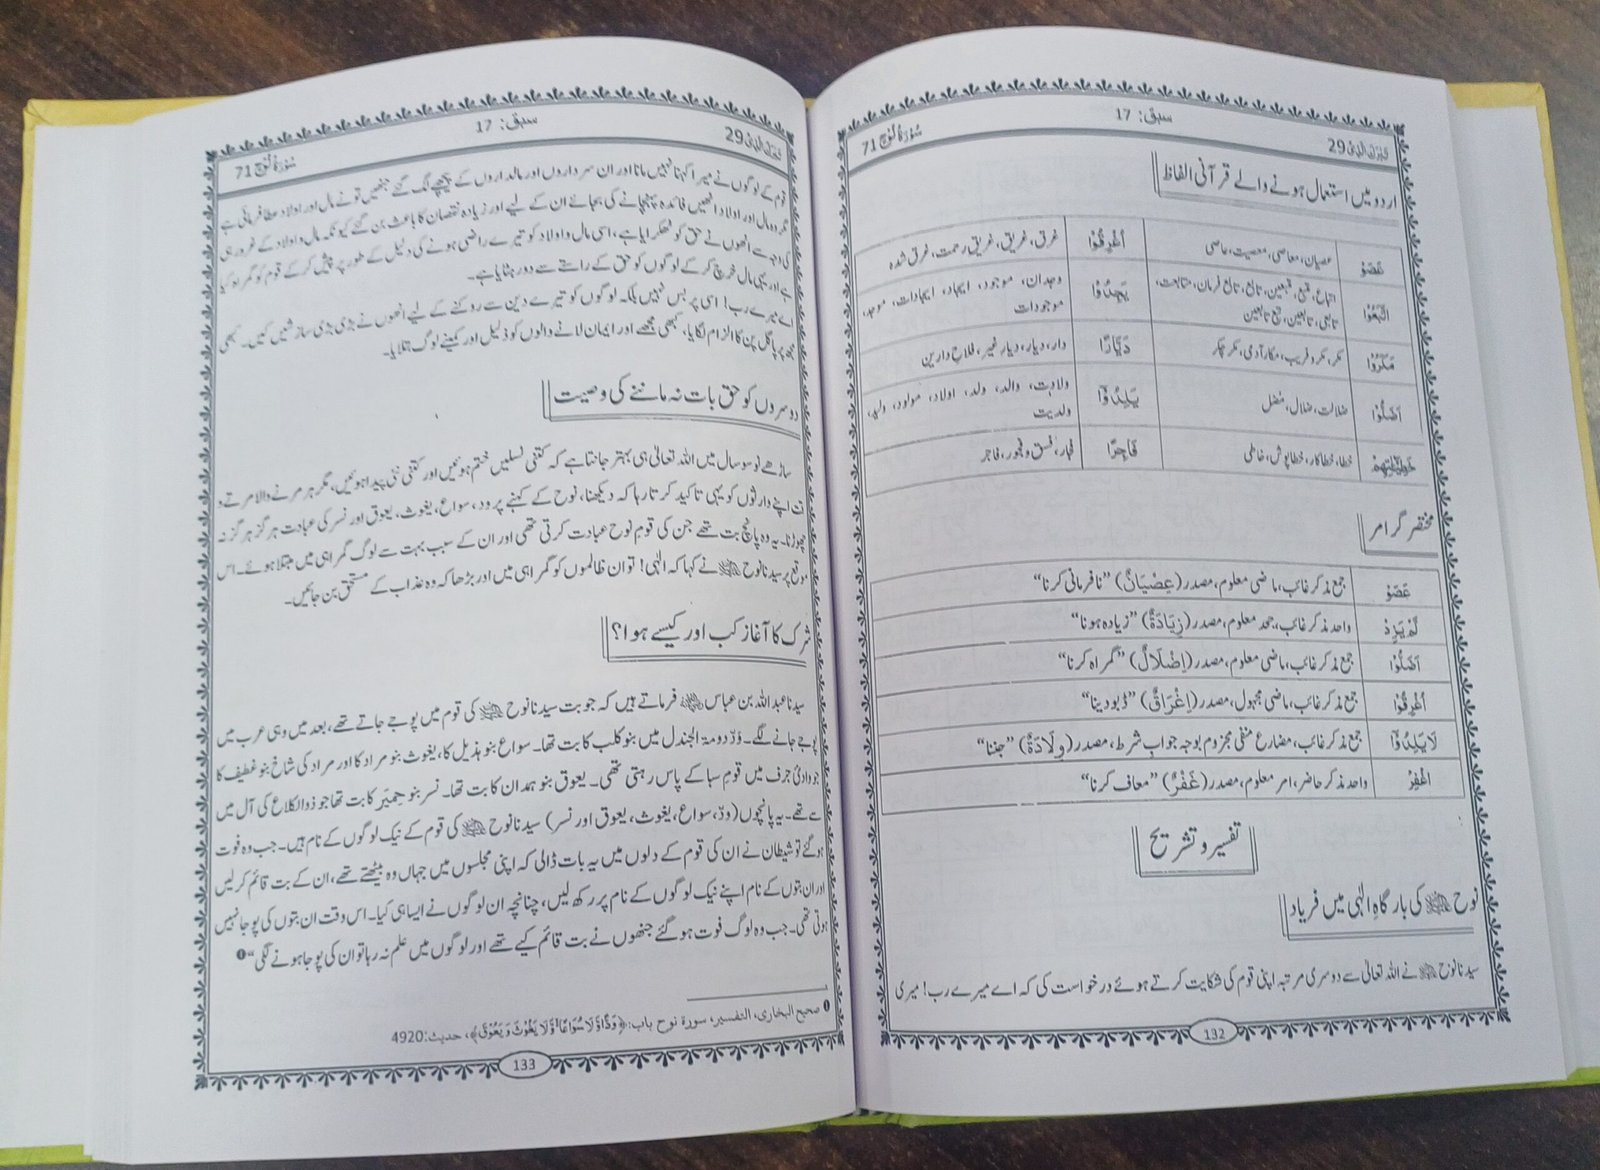 تَبٰرَكَ الَّذِیْ 29
سبق: 17
سُوْرَةُ نُوْحٍ 71
اردو میں استعمال ہونے والے قرآنی الفاظ
عَصَوْ عصیان، معاصی، معصیت، عاصی اُغْرِقُوْا غرق، غریق، غریق رحمت، غرق شدہ
اتَّبَعُوْا اتباع، متبع، متبعین، تابع، تابع فرمان، متابعت، تابعی، تابعین، تبع تابعین یَجِدُوْا وجدان، موجود، ایجاد، ایجادات، موجد، موجودات
مَكَرُوْا مکر، مکر و فریب، مکار آدمی، مکر چکر دَیَّارًا دار، دیار، دیار غیر، فلاح دارین
اَضَلُّوْا ضلالت، ضلال، مُضل یَلِدُوْۤا ولادت، والد، ولد، اولاد، مولود، ولید، ولدیت
خَطِیْٓـٰٔتِهِمْ خطا، خطاکار، خطاپوش، خاطی فَاجِرًا فجار، فسق و فجور، فاجر
مختصر گرامر
عَصَوْ جمع مذکر غائب، ماضی معلوم، مصدر (عِصْیَانٌ) ”نافرمانی کرنا“
لَمْ یَزِدْ واحد مذکر غائب، جحد معلوم، مصدر (زِیَادَةٌ) ”زیادہ ہونا“
اَضَلُّوْا جمع مذکر غائب، ماضی معلوم، مصدر (اِضْلَالٌ) ”گمراہ کرنا“
اُغْرِقُوْا جمع مذکر غائب، ماضی مجہول، مصدر (اِغْرَاقٌ) ”ڈبو دینا“
لَا یَلِدُوْۤا جمع مذکر غائب، مضارع منفی مجزوم بوجہ جواب شرط، مصدر (وِلَادَةٌ) ”جننا“
اغْفِرْ واحد مذکر حاضر، امر معلوم، مصدر (غَفْرٌ) ”معاف کرنا“
تفسیر و تشریح
نوح علیہ السلام کی بارگاہِ الٰہی میں فریاد
سیدنا نوح علیہ السلام نے اللہ تعالیٰ سے دوسری مرتبہ اپنی قوم کی شکایت کرتے ہوئے درخواست کی کہ اے میرے رب! میری
132
تَبٰرَكَ الَّذِیْ 29
سبق: 17
سُوْرَةُ نُوْحٍ 71
قوم کے لوگوں نے میرا کہنا نہیں مانا اور ان سرداروں اور مالداروں کے پیچھے لگ گئے جنھیں تو نے مال اور اولاد عطا فرمائی ہے
مگر وہ مال اور اولاد انھیں فائدہ پہنچانے کی بجائے ان کے لیے اور زیادہ نقصان کا باعث بن گئے کیونکہ مال و اولاد کے غرور ہی
کی وجہ سے انھوں نے حق کو ٹھکرایا ہے، اسی مال و اولاد کو تیرے راضی ہونے کی دلیل کے طور پر پیش کر کے قوم کو گمراہ کیا
ہے اور یہی مال خرچ کر کے لوگوں کو حق کے راستے سے دور ہٹایا ہے۔
اے میرے رب! اسی پر بس نہیں بلکہ لوگوں کو تیرے دین سے روکنے کے لیے انھوں نے بڑی بڑی سازشیں کیں۔ کبھی
مجھ پر پاگل پن کا الزام لگایا، کبھی مجھے اور ایمان لانے والوں کو ذلیل اور کمینے لوگ بتلایا۔
دوسروں کو حق بات نہ ماننے کی وصیت
ساڑھے نو سو سال میں اللہ تعالیٰ ہی بہتر جانتا ہے کہ کتنی نسلیں ختم ہوئیں اور کتنی نئی پیدا ہوئیں، مگر ہر مرنے والا مرتے و
قت اپنے وارثوں کو یہی تاکید کرتا رہا کہ دیکھنا، نوح کے کہنے پر ود، سواع، یغوث، یعوق اور نسر کی عبادت ہرگز ہرگز نہ
چھوڑنا۔ یہ وہ پانچ بت تھے جن کی قوم نوح عبادت کرتی تھی اور ان کے سبب بہت سے لوگ گمراہی میں مبتلا ہوئے۔ اس
موقع پر سیدنا نوح علیہ السلام نے کہا کہ الٰہی! تو ان ظالموں کو گمراہی میں اور بڑھا کہ وہ عذاب کے مستحق بن جائیں۔
شرک کا آغاز کب اور کیسے ہوا؟
سیدنا عبداللہ بن عباس رضی اللہ عنہما فرماتے ہیں کہ جو بت سیدنا نوح علیہ السلام کی قوم میں پوجے جاتے تھے، بعد میں وہی عرب میں
پوجے جانے لگے۔ وَدّ دومۃ الجندل میں بنو کلب کا بت تھا۔ سواع بنو ہذیل کا، یغوث بنو مراد کا اور مراد کی شاخ بنو غطیف کا
جو وادیٔ جرف میں قوم سبا کے پاس رہتی تھی۔ یعوق بنو ہمدان کا بت تھا۔ نسر بنو حِمیَر کا بت تھا جو ذوالکلاع کی آل میں
سے تھے۔ یہ پانچوں (ودّ، سواع، یغوث، یعوق اور نسر) سیدنا نوح علیہ السلام کی قوم کے نیک لوگوں کے نام ہیں۔ جب وہ فوت
ہو گئے تو شیطان نے ان کی قوم کے دلوں میں یہ بات ڈالی کہ اپنی مجلسوں میں جہاں وہ بیٹھتے تھے، ان کے بت قائم کر لیں
اور ان بتوں کے نام اپنے نیک لوگوں کے نام پر رکھ لیں، چنانچہ ان لوگوں نے ایسا ہی کیا۔ اس وقت ان بتوں کی پوجا نہیں
ہوتی تھی۔ جب وہ لوگ فوت ہو گئے جنھوں نے بت قائم کیے تھے اور لوگوں میں علم نہ رہا تو ان کی پوجا ہونے لگی“ ❶
❶ صحیح البخاری، التفسیر، سورة نوح باب: ﴿وَدًّا وَّلَا سُوَاعًا وَّلَا یَغُوْثَ وَیَعُوْقَ﴾، حدیث: 4920
133